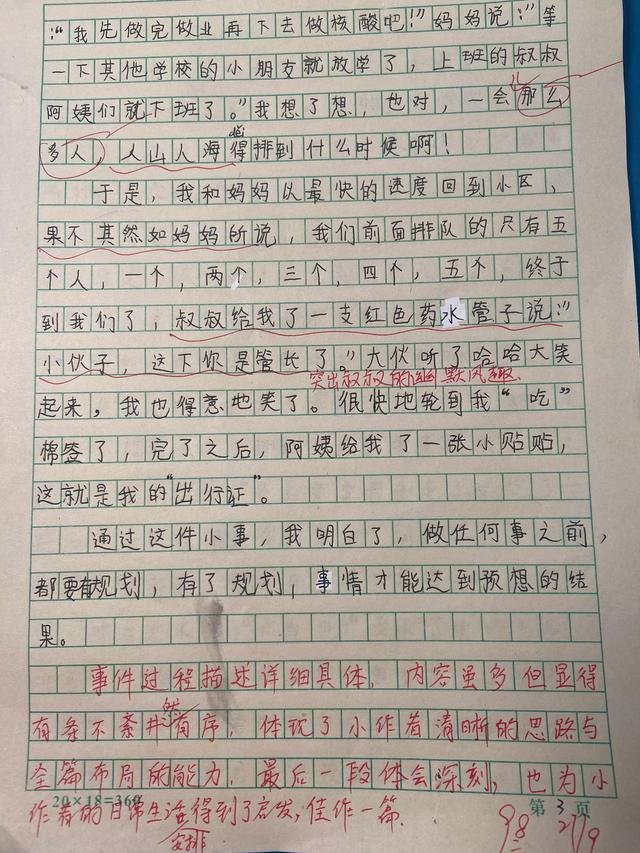 ："我先做完做业再下去做核酸吧！"妈妈说："等
一下其他学校的小朋友就放学了，上班的叔叔
阿姨们就下班了。"我想了想，也对，一会儿那么
多人，人山人海得排到什么时候啊！
于是，我和妈妈以最快的速度回到小区、
果不其然如妈妈所说，我们前面排队的只有五
个人，一个，两个，三个，四个，五个，终于
到我们了，叔叔给我了一支红色药水管子说："
小伙子，这下你是管长了。"大伙听了哈哈大笑
突出叔叔的幽默风趣.
起来，我也得意地笑了。很快地轮到我"吃"
棉签了，完了之后，阿姨给我了一张小贴贴，
这就是我的"出行证"。
通过这件小事，我明白了，做任何事之前，
都要有规划，有了规划，事情才能达到预想的结
果。
事件过程描述详细具体．内容虽多但显得
有条不紊井然有序，体现了小作者清晰的思路与
全篇布局的能力．最后一段体会深刻，也为小
作者的日常生活安排得到了启发，佳作一篇．
20×18=360
第3页
98
27/9